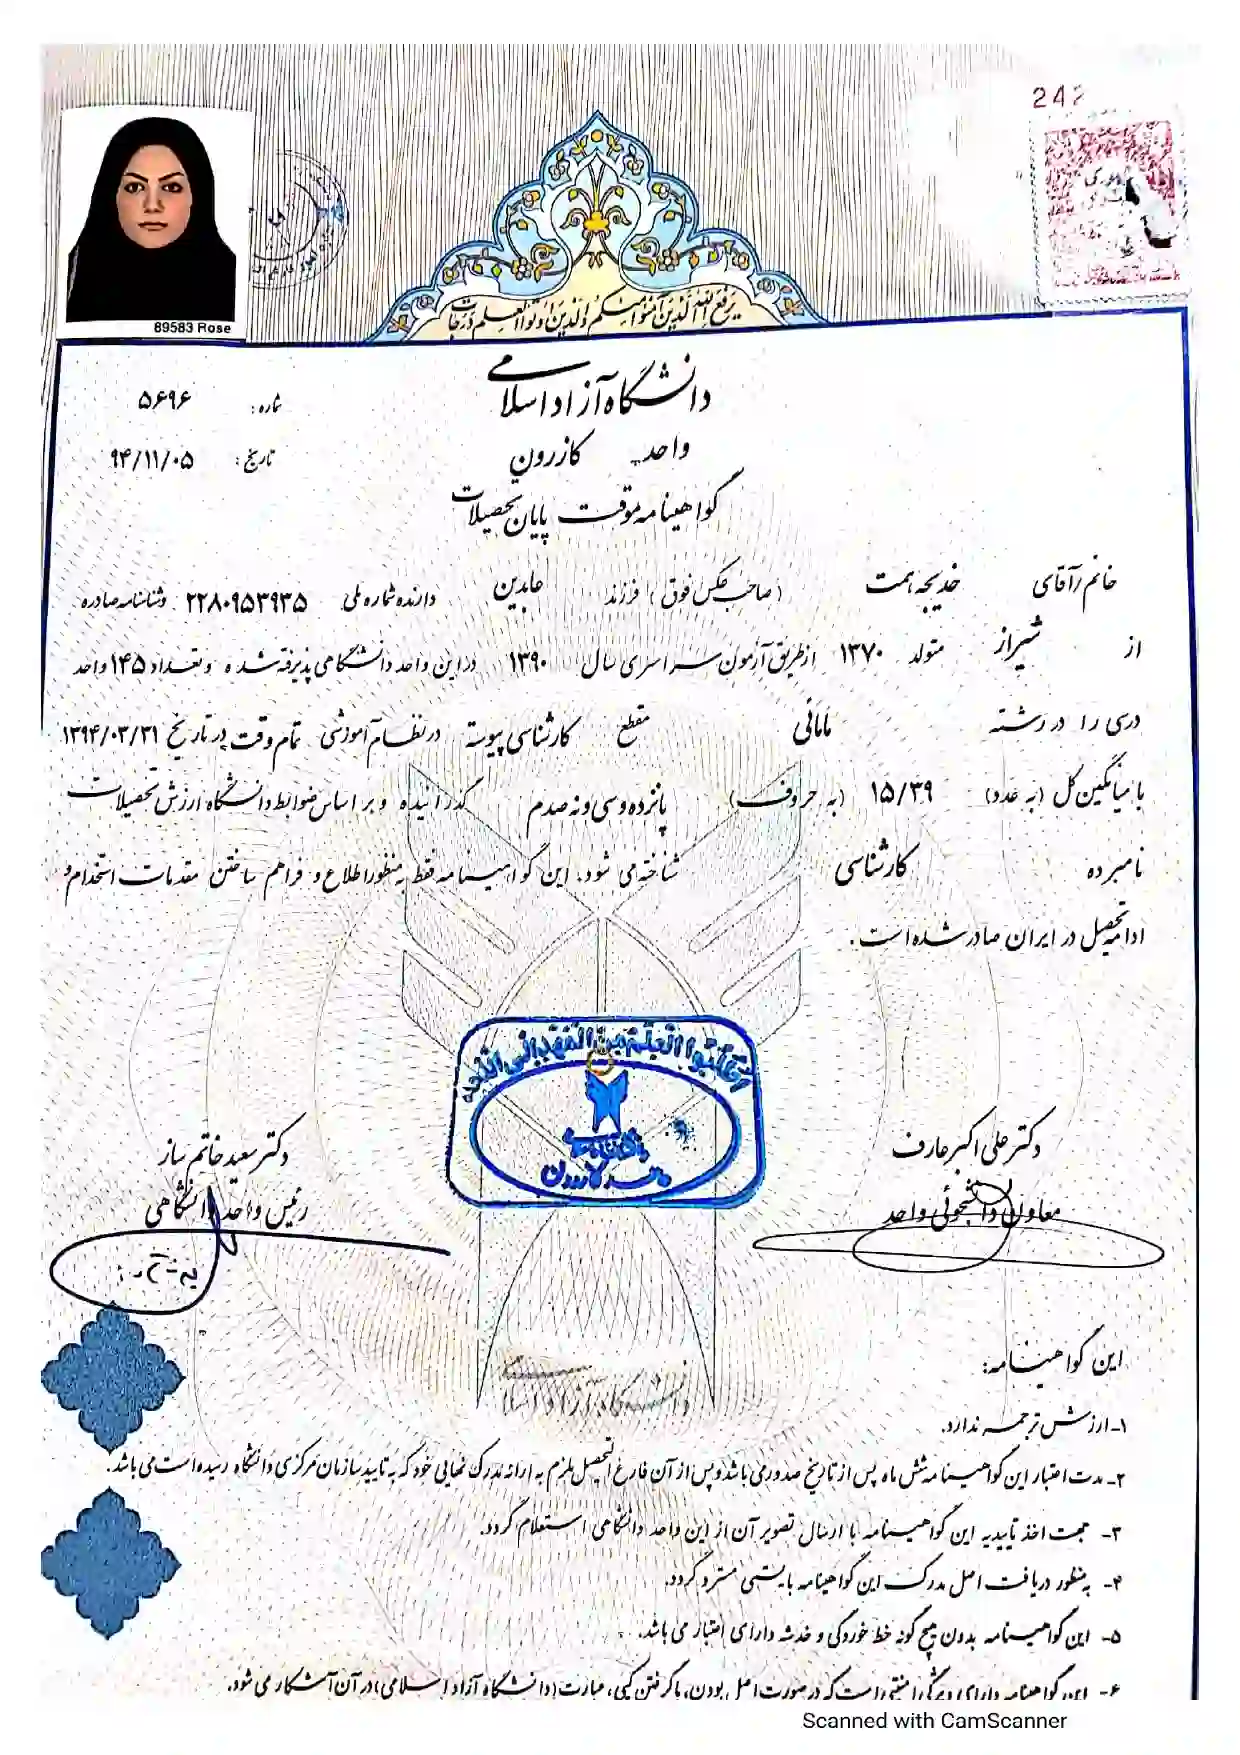 242
89583 Rose
یرفع الله الذین آمنوا منکم والذین اوتوا العلم درجات
دانشگاه آزاد اسلامی
شماره: ۵۶۹۶
واحد کازرون
تاریخ: ۹۴/۱۱/۰۵
گواهینامه موقت پایان تحصیلات
خانم/آقای خدیجه همت (صاحب عکس فوق) فرزند عابدین دارنده شماره ملی ۲۲۸۰۹۵۳۹۳۵ وشناسنامه صادره
از شیراز متولد ۱۳۷۰ ازطریق آزمون سراسری سال ۱۳۹۰ در این واحد دانشگاهی پذیرفته شده و تعداد ۱۴۵ واحد
درسی را در رشته مامائی مقطع کارشناسی پیوسته در نظام آموزشی تمام وقت در تاریخ ۱۳۹۴/۰۳/۳۱
با میانگین کل (به عدد) ۱۵/۳۹ (به حروف) پانزده وسی ونه صدم گذرانیده وبر اساس ضوابط دانشگاه ارزش تحصیلات
نامبرده کارشناسی شناخته می شود. این گواهینامه فقط به منظور اطلاع و فراهم ساختن مقدمات استخدام و
ادامه تحصیل در ایران صادر شده است.
دانشگاه آزاد اسلامی
واحد کازرون
دکتر علی اکبر عارف
معاون دانشجوئی واحد
دکتر سعید خاتم ساز
رئیس واحد دانشگاهی
دانشگاه آزاد اسلامی
این گواهینامه:
۱- ارزش ترجمه ندارد.
۲- مدت اعتبار این گواهینامه شش ماه پس از تاریخ صدور می باشد و پس از آن فارغ التحصیل ملزم به ارائه مدرک نهایی خود که به تایید سازمان مرکزی دانشگاه رسیده است می باشد.
۳- جهت اخذ تاییدیه این گواهینامه با ارسال تصویر آن از این واحد دانشگاهی استعلام گردد.
۴- به منظور دریافت اصل مدرک این گواهینامه بایستی مسترد گردد.
۵- این گواهینامه بدون هیچ گونه خط خوردگی و خدشه دارای اعتبار می باشد.
۶- این گواهینامه دارای ویژگی امنیتی است که در صورت اصل بودن، با گرفتن کپی، عبارت (دانشگاه آزاد اسلامی) در آن آشکار می شود.
Scanned with CamScanner